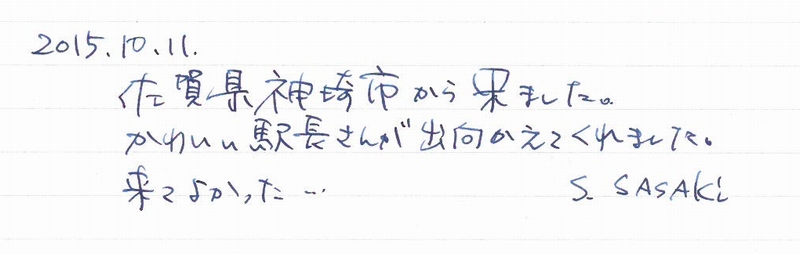 2015.10.11.
佐賀県神埼市から来ました。
かわいい駅長さんが出向かえてくれました。
来てよかった…
S. SASAKi